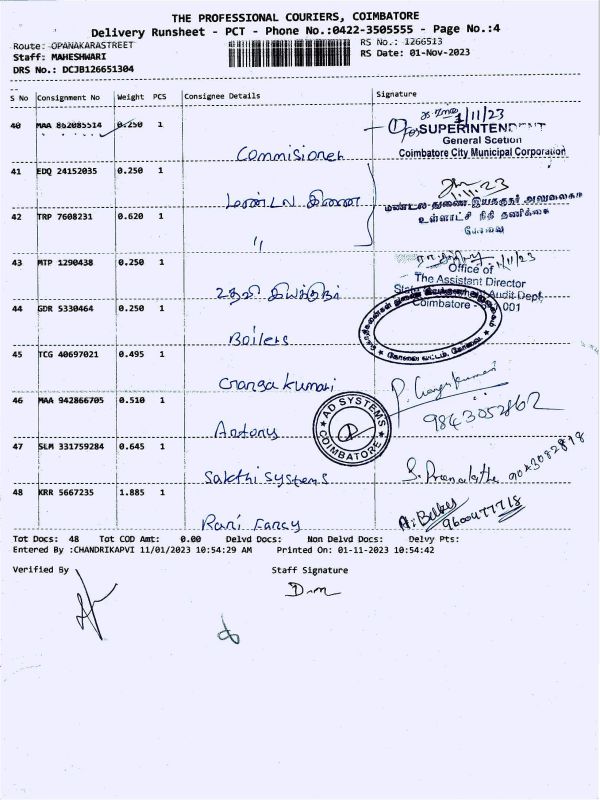 THE PROFESSIONAL COURIERS, COIMBATORE
Delivery Runsheet - PCT - Phone No.:0422-3505555 - Page No.:4
Route: OPANAKARASTREET RS No.: 1266513
Staff: MAHESHWARI RS Date: 01-Nov-2023
DRS No.: DCJB126651304
S No Consignment No Weight PCS Consignee Details Signature
40 MAA 862085514 0.250 1 Commisioner 1/11/23
For SUPERINTENDENT
General Scetion
Coimbatore City Municipal Corporation
41 EDQ 24152035 0.250 1 மண்டல இணை 1.11.23
மண்டல-துணை-இயக்குநர் அலுவலகம்
உள்ளாட்சி நிதி தணிக்கை
கோவை
42 TRP 7608231 0.620 1 "
43 MTP 1290438 0.250 1 உதவி இயக்குநர் 1/11/23
Office of
The Assistant Director
Audit Dept
Coimbatore 001
44 GDR 5330464 0.250 1 Boilers
கோவை வட்டம், கோவை.
45 TCG 40697021 0.495 1 Ganga Kumari
9843052862
46 MAA 942866705 0.510 1 Antony
AD SYSTEMS
COIMBATORE
47 SLM 331759284 0.645 1 Sakthi Systems
48 KRR 5667235 1.885 1 Rani Fancy
9600477718
Tot Docs: 48 Tot COD Amt: 0.00 Delvd Docs: Non Delvd Docs: Delvy Pts:
Entered By :CHANDRIKAPVI 11/01/2023 10:54:29 AM Printed On: 01-11-2023 10:54:42
Verified By Staff Signature